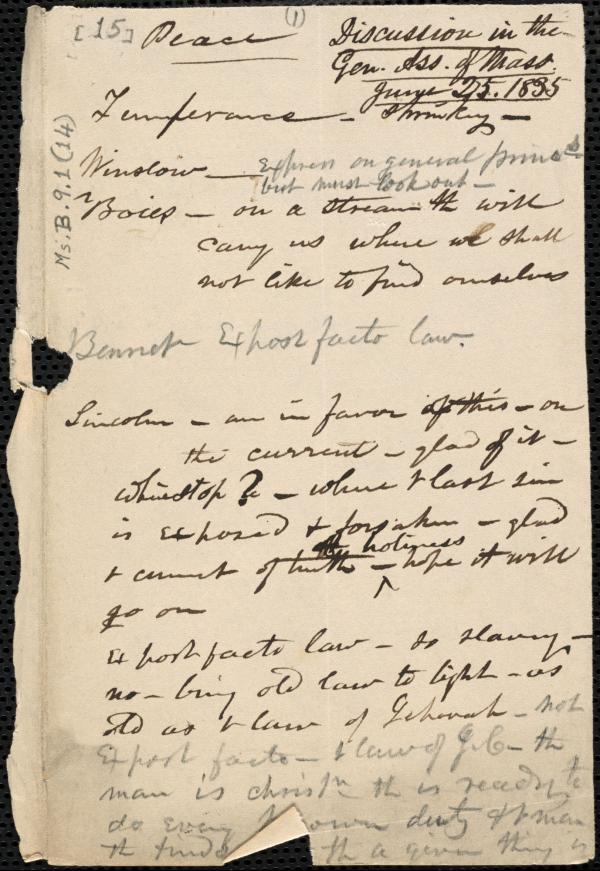 [15] Peace (1) Discussion in the
Gen. Ass. of Mass.
June 25. 1835
Temperance - Shrinking -
Winslow - Express on general princs
but must look out -
Boies - on a stream th will
carry us where we shall
not like to find ourselves
Ms. B. 9.1 (14)
Bennet Ex post facto law.
Lincoln - am in favor of this - on
the current - glad of it -
where stop? - where t last sin
is exposed & forsaken - glad
t current of truth th holiness - hope it will
go on
Ex post facto law - so slavery -
no - bring old law to light - as
old as t law of Jehovah - not
Ex post facto - t law of J. C. - th
man is christn th is ready to
do every known duty & t man
th a given thing is